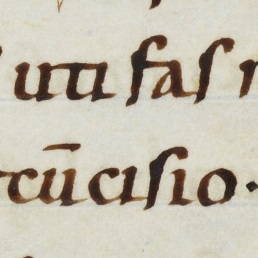 uti faſ
rcūciſio·